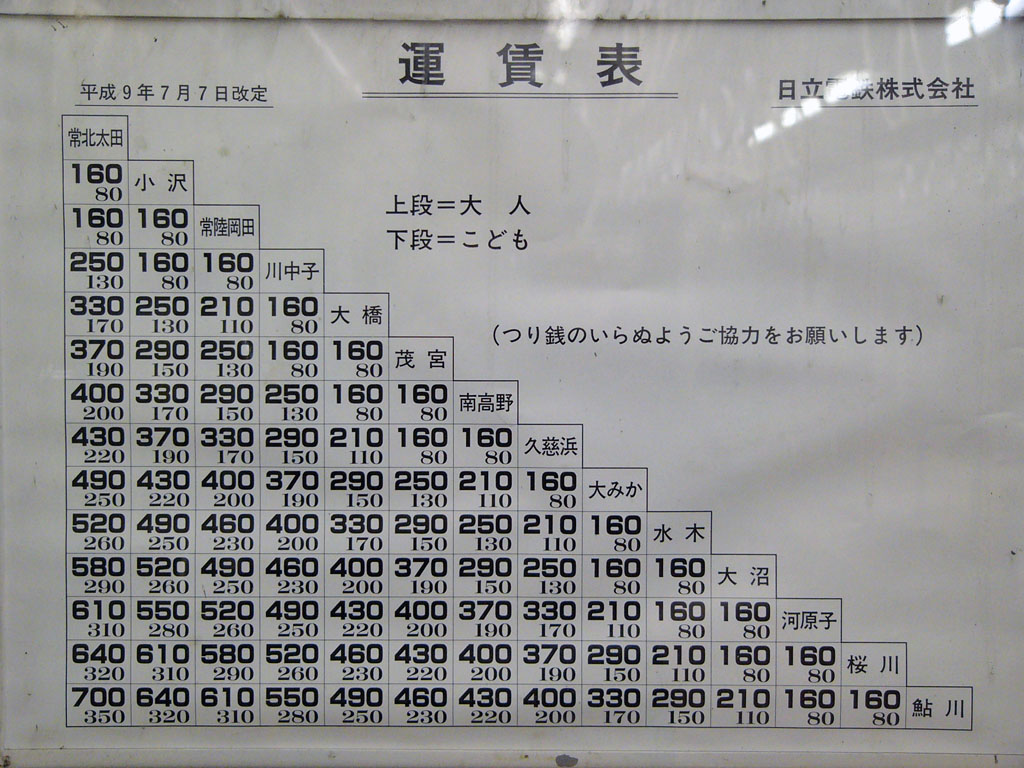 運賃表
平成9年7月7日改定
日立電鉄株式会社
上段=大 人
下段=こども
(つり銭のいらぬようご協力をお願いします)
常北太田
160 小沢
80
160 160 常陸岡田
80 80
250 160 160 川中子
130 80 80
330 250 210 160 大橋
170 130 110 80
370 290 250 160 160 茂宮
190 150 130 80 80
400 330 290 250 160 160 南高野
200 170 150 130 80 80
430 370 330 290 210 160 160 久慈浜
220 190 170 150 110 80 80
490 430 400 370 290 250 210 160 大みか
250 220 200 190 150 130 110 80
520 490 460 400 330 290 250 210 160 水木
260 250 230 200 170 150 130 110 80
580 520 490 460 400 370 290 250 160 160 大沼
290 260 250 230 200 190 150 130 80 80
610 550 520 490 430 400 370 330 210 160 160 河原子
310 280 260 250 220 200 190 170 110 80 80
640 610 580 520 460 430 400 370 290 210 160 160 桜川
320 310 290 260 230 220 200 190 150 110 80 80
700 640 610 550 490 460 430 400 330 290 210 160 160 鮎川
350 320 310 280 250 230 220 200 170 150 110 80 80